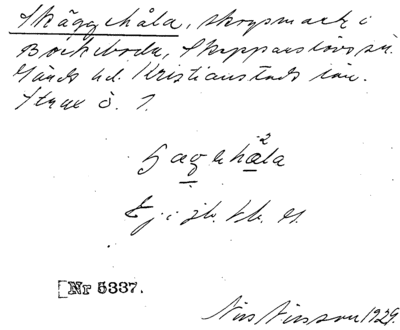 Skäggehåla, skogsmark i
Bockeboda, Skepparslövs sn.
Gärds hd. Kristianstads län.
Strax ö. 7.
håla
Ej i jb.
Nr 5337.
Nils Nilsson 1929.